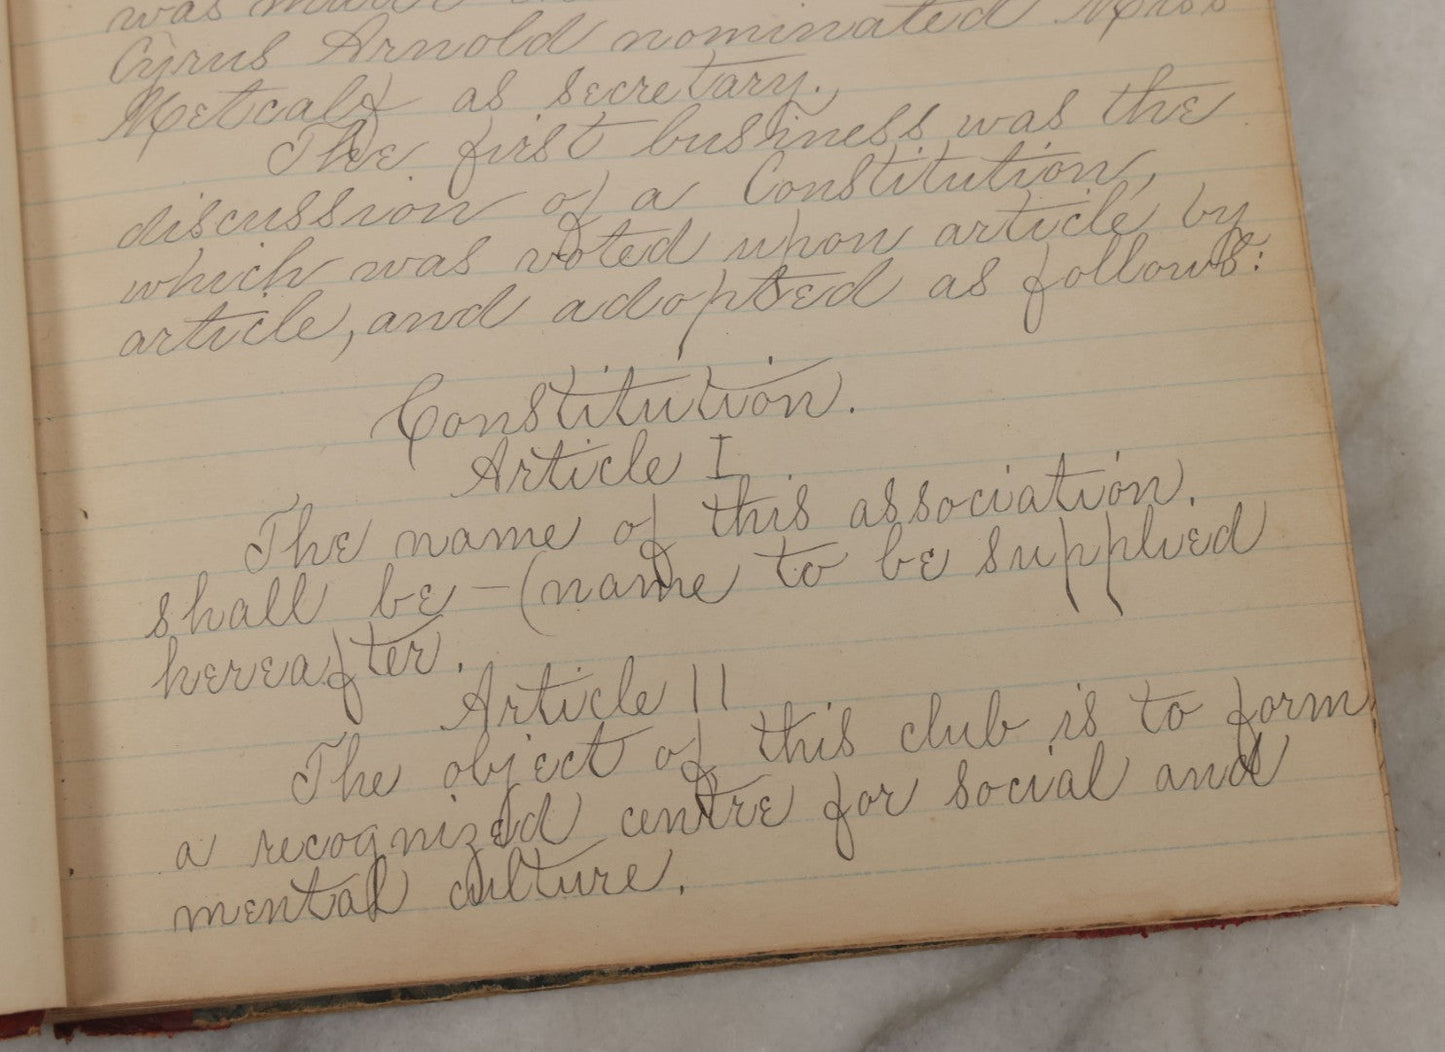 was made
Cyrus Arnold nominated Miss
Metcalf as secretary.
The first business was the
discussion of a Constitution,
which was voted upon article by
article, and adopted as follows:
Constitution.
Article I
The name of this association.
shall be - (name to be supplied
hereafter.
Article II
The object of this club is to form
a recognized centre for social and
mental culture.